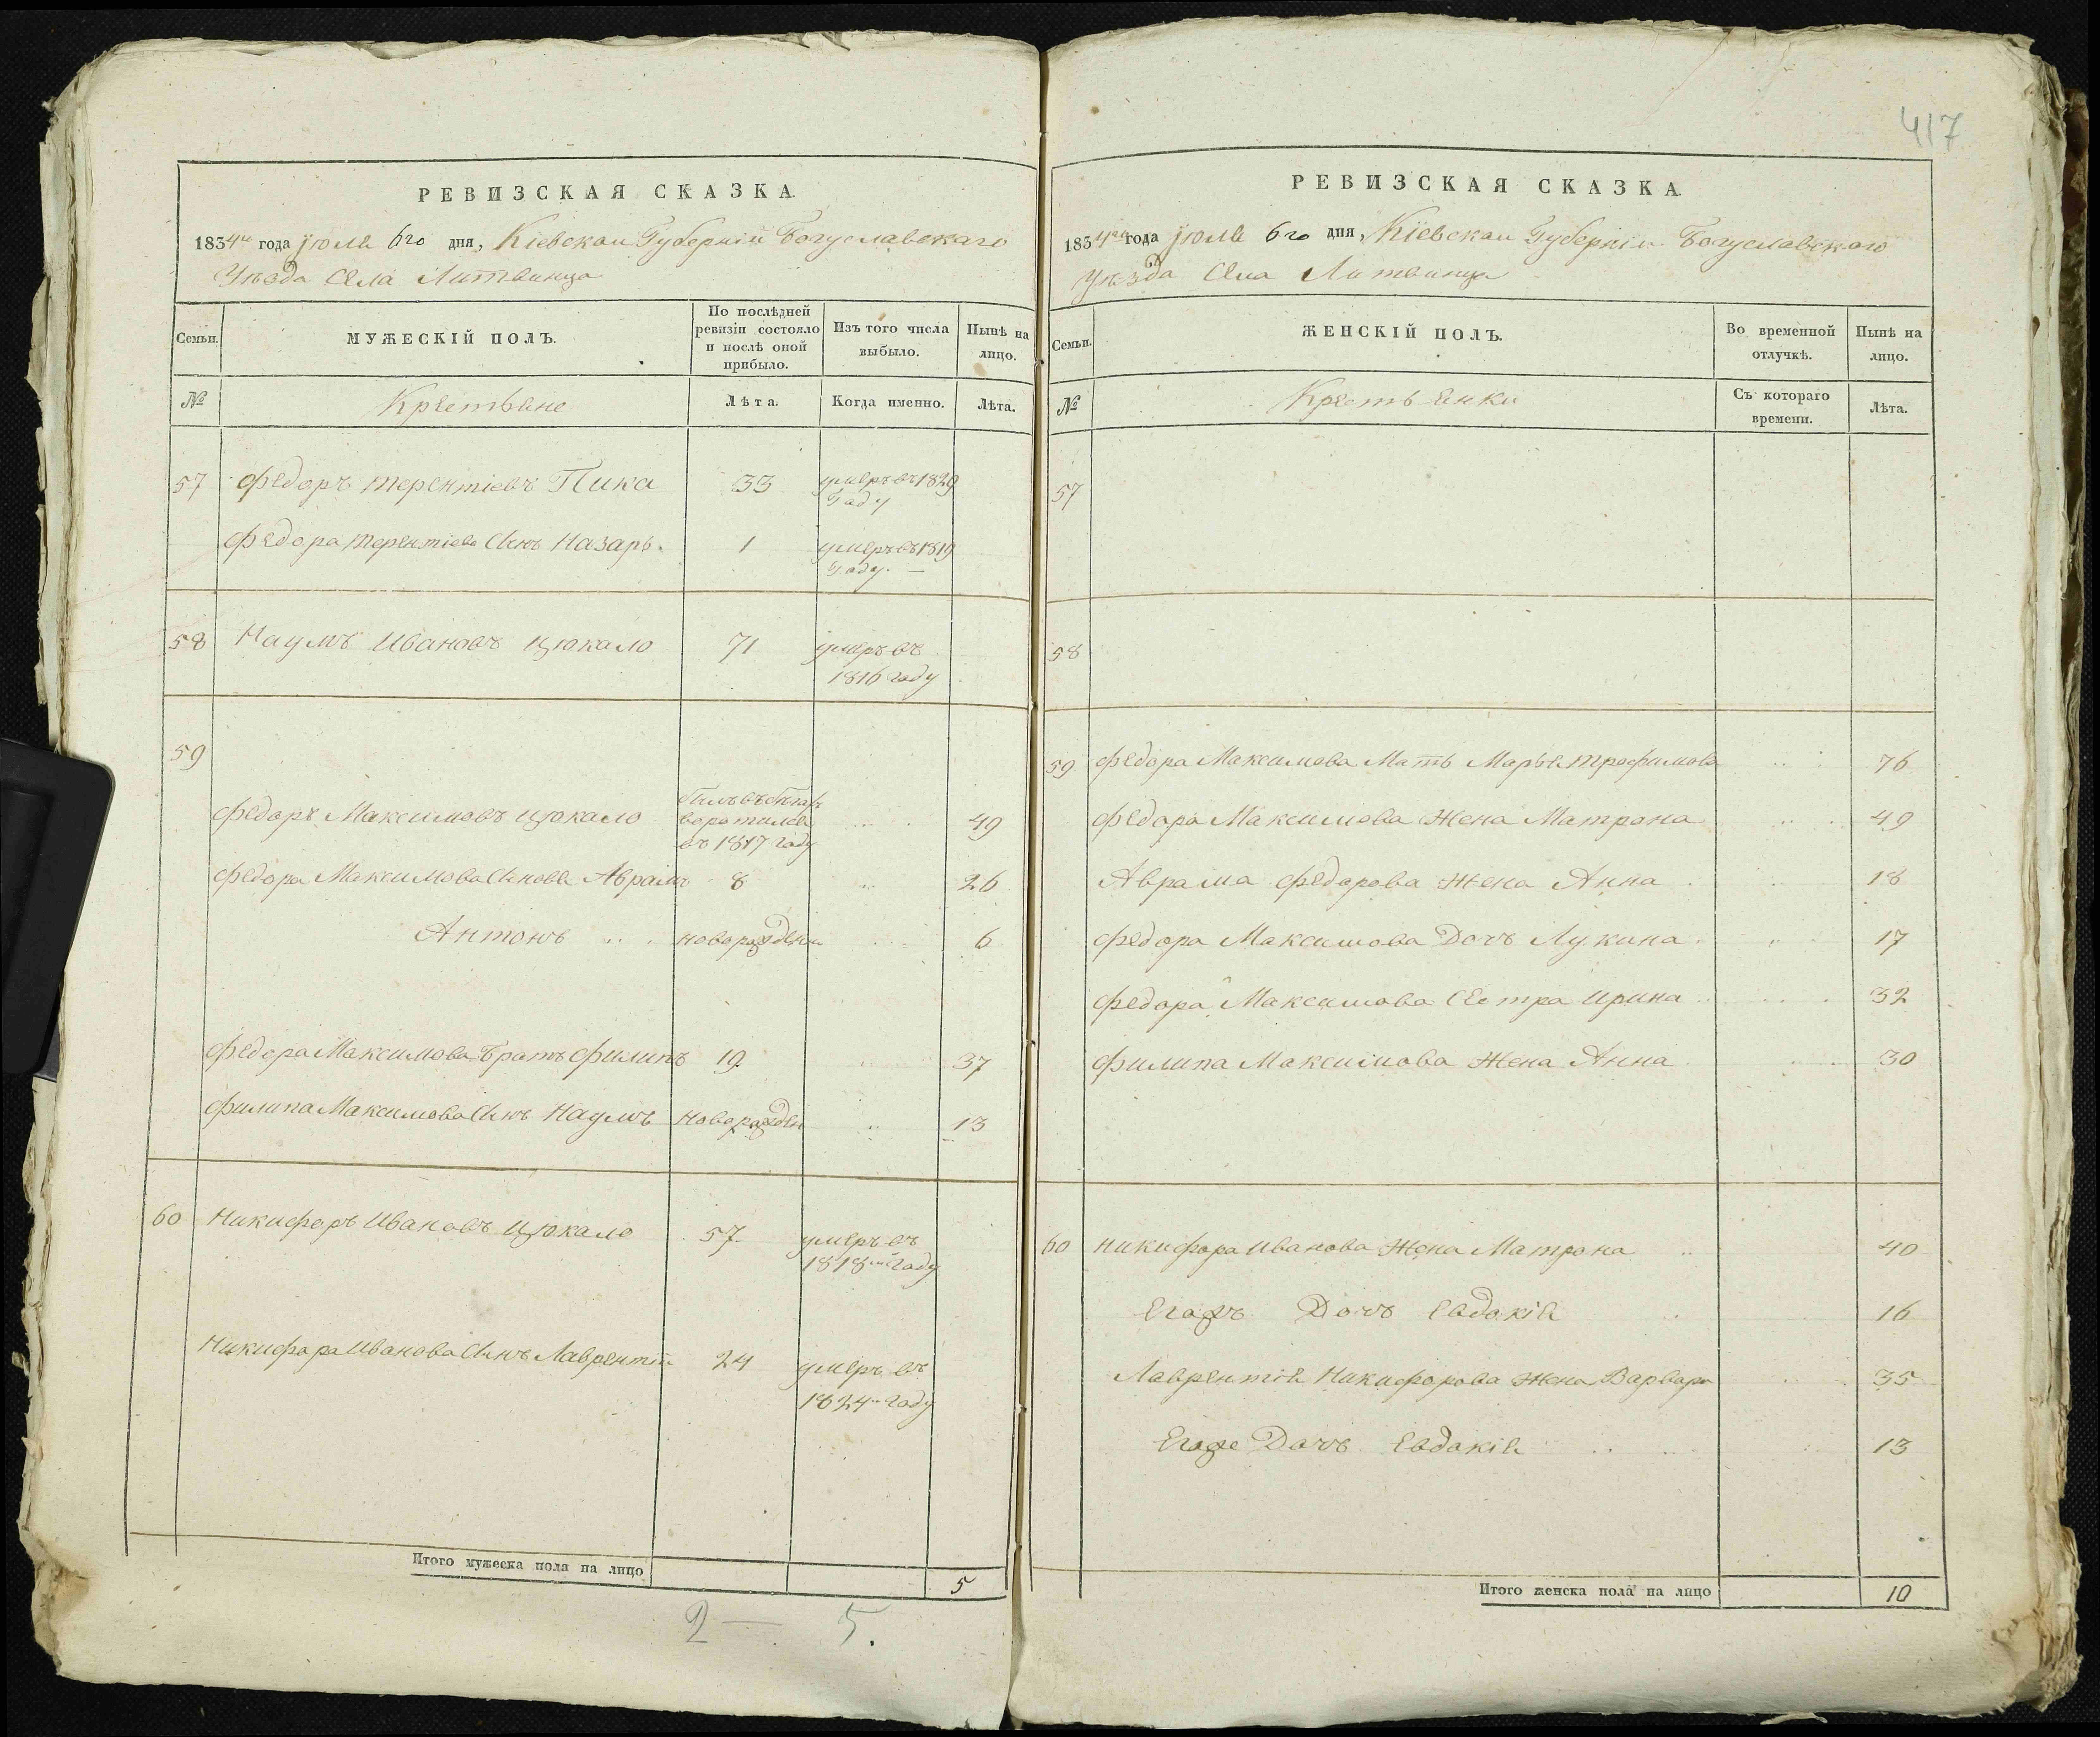 417
РЕВИЗСКАЯ СКАЗКА
1834го года Іюля 6го дня, Кіевской Губерніи Богуславскаго
Уѣзда Села Литвинца
Семьи.
МУЖЕСКІЙ ПОЛЪ.
По послѣдней
ревизіи состояло
и послѣ оной
прибыло.
Изъ того числа
выбыло.
Нынѣ на
лицо.
№
Крестьяне
Лѣта.
Когда именно.
Лѣта.
57 Федоръ Терентіевъ Пика 33 умеръ въ 1829
Году
Федора Терентіева Сынъ Назаръ. 1 умеръ въ 1819
Году.
58 Наумъ Ивановъ Цюкало 71 умеръ въ
1816 году
59
Федоръ Максимовъ Цюкало 49
въ 1817 году
Федора Максимова Сыновя Аврамъ 8 26
Антонъ новорожден 6
Федора Максимова Братъ Филипъ 19 37
Филипа Максимова Сынъ Наумъ новорожден 13
60 Никифоръ Ивановъ Цюкало 57 умеръ въ
1818 году
Никифора Иванова Сынъ Лаврентій 24 умеръ въ
1824 году
Итого мужеска пола на лицо 5
2 — 5.
РЕВИЗСКАЯ СКАЗКА
1834го года Іюля 6го дня, Кіевской Губерніи Богуславского
Уѣзда Села Литвинца
Семьи.
ЖЕНСКІЙ ПОЛЪ.
Во временной
отлучкѣ.
Нынѣ на
лицо.
№
Крестьянки
Съ котораго
времени.
Лѣта.
57
58
59 Федора Максимова Мать Марья Трофимова 76
Федора Максимова Жена Матрона 49
Аврама Федорова Жена Анна 18
Федора Максимова Дочь Лукина 17
Федора Максимова Сестра Ирина 32
Филипа Максимова Жена Анна 30
60 Никифора Иванова Жена Матрона 40
Дочь Евдокія 16
Лаврентія Никифорова Жена Варвара 35
Дочь Евдокія 13
Итого женска пола на лицо 10